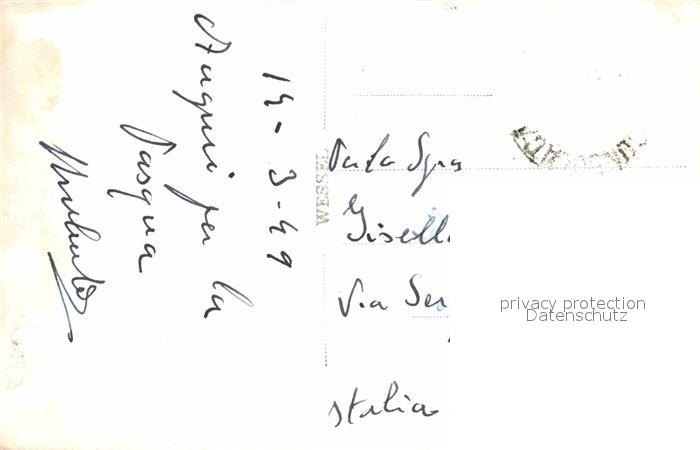 19 - 3 - 49
Auguri per la
Pasqua
Umberto
WESSEL
Gisell
Via Ser
Italia
privacy protection
Datenschutz